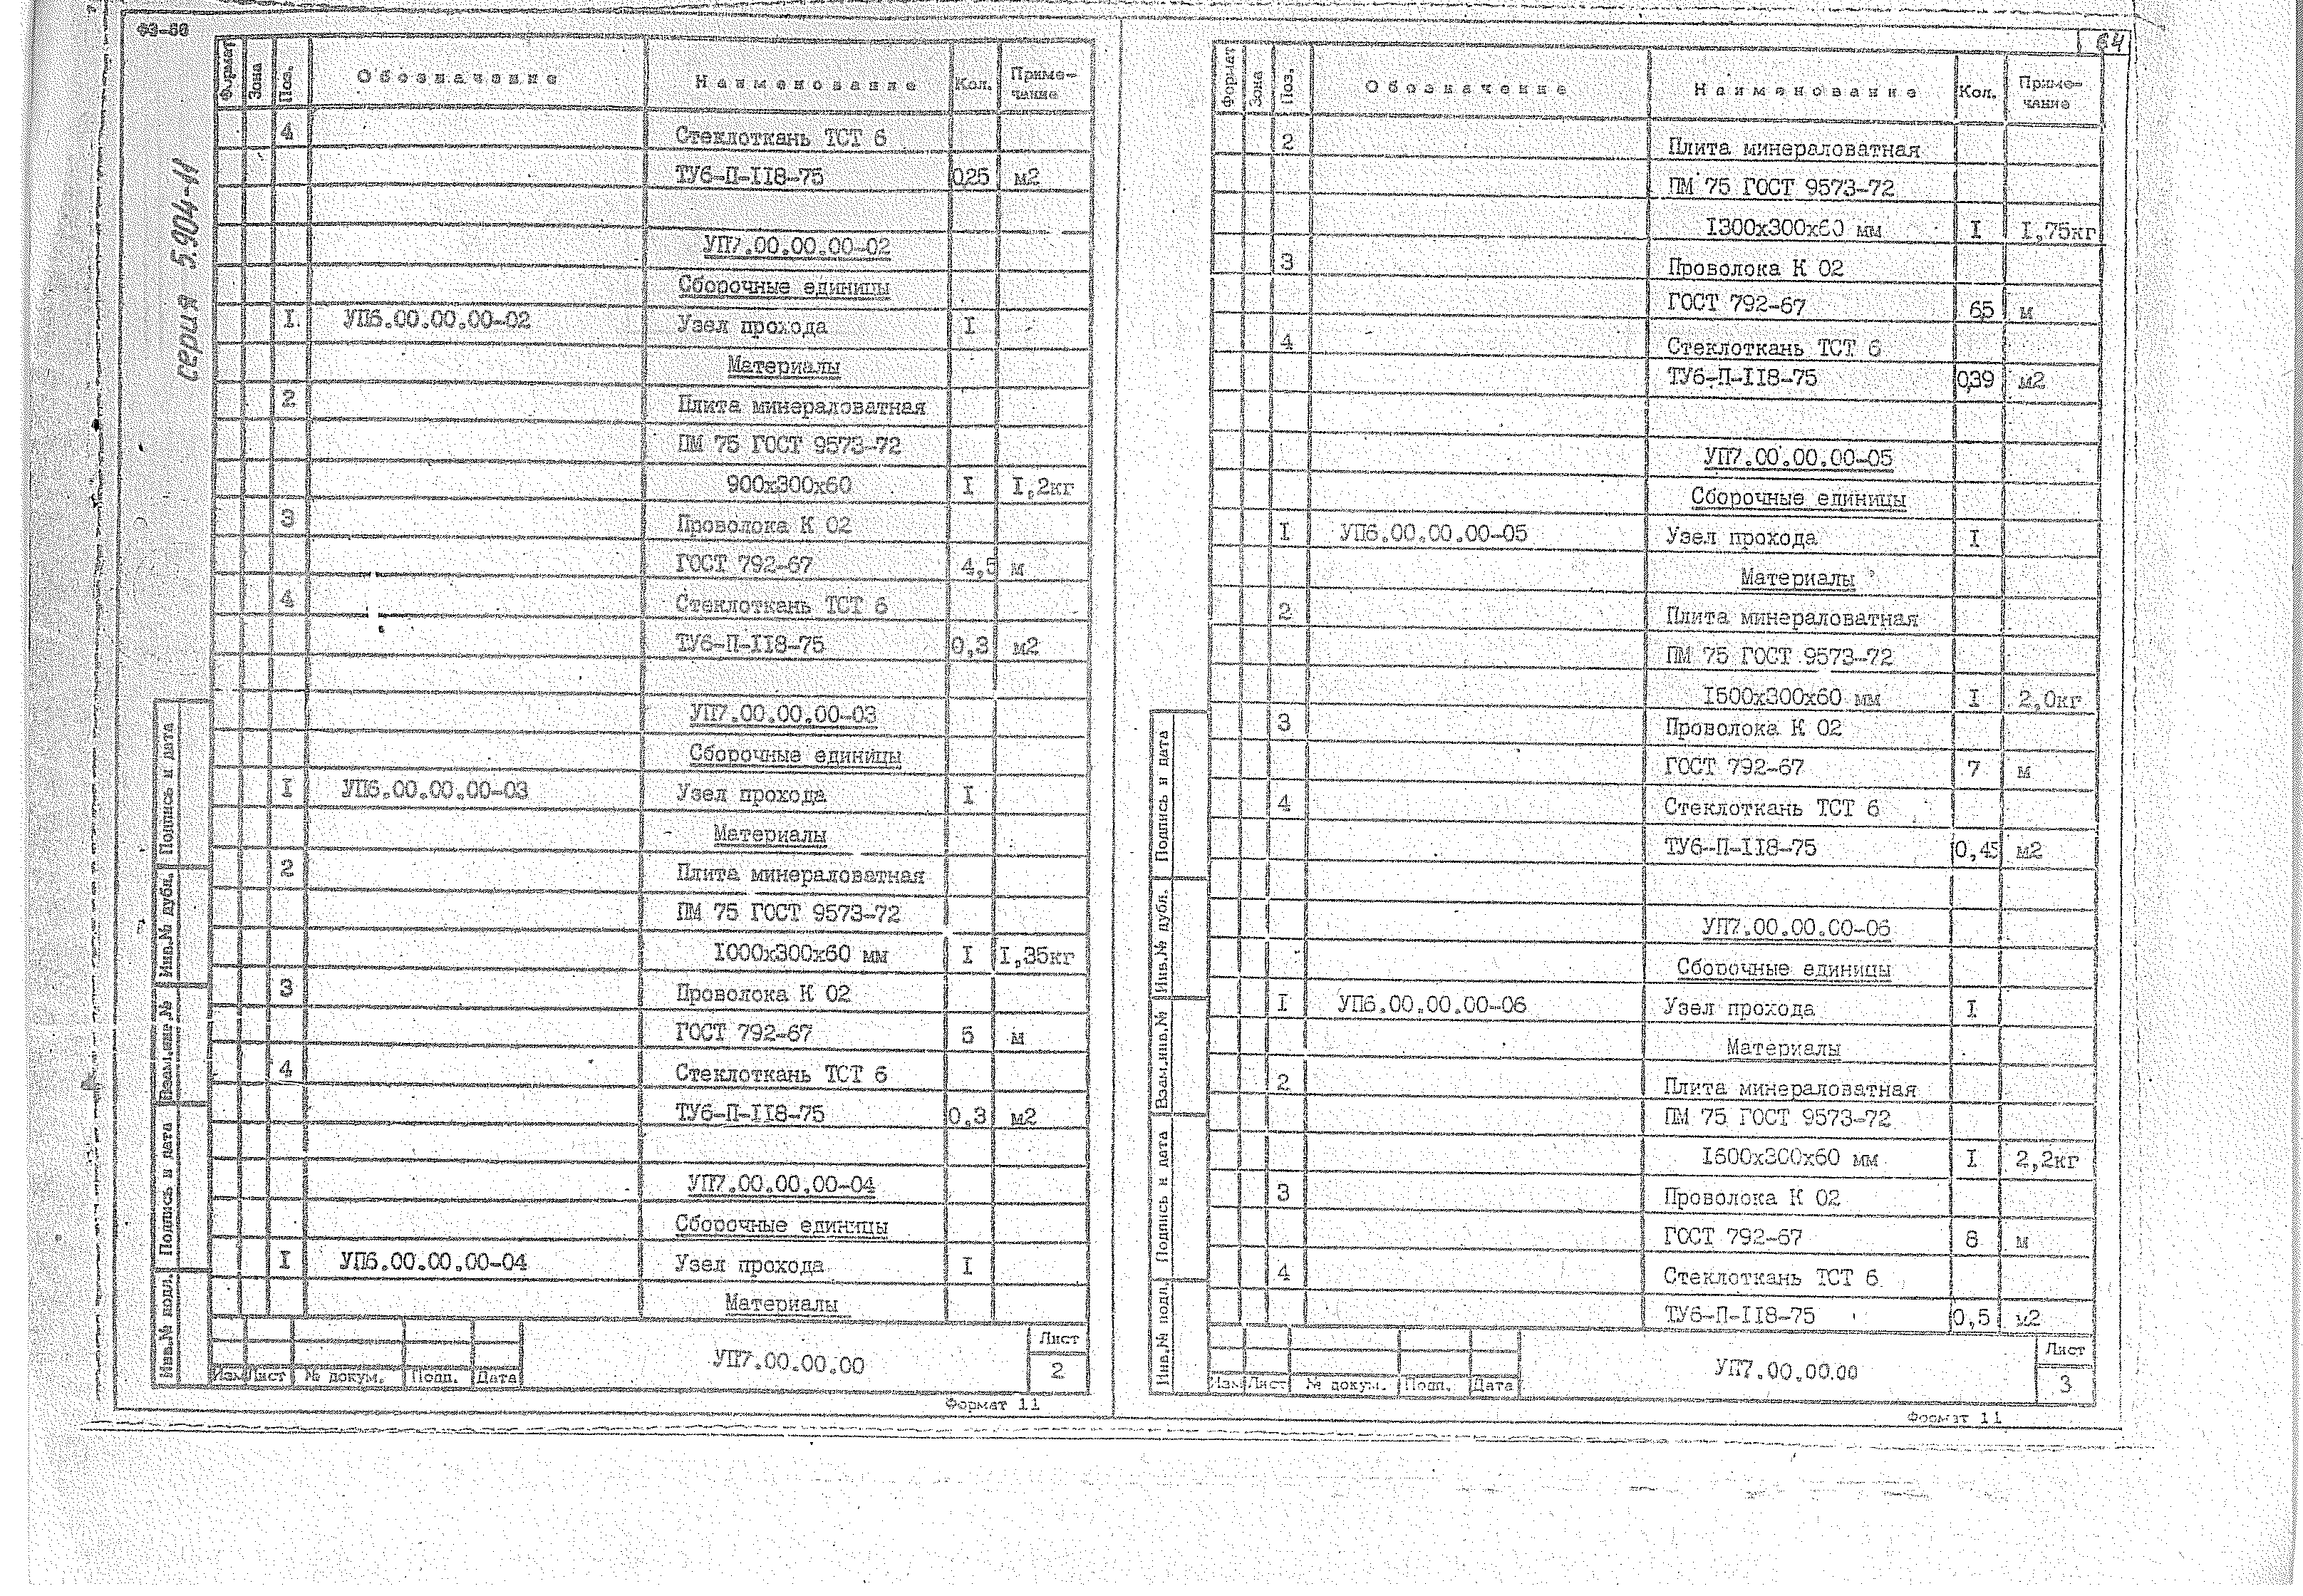 ФЗ-60
64
серия 5.904-11
Формат Зона Поз. Обозначение Наименование Кол. Приме-
чание
4 Стеклоткань ТСТ 6
ТУ6-П-II8-75 0,25 м2
УП7.00.00.00-02
Сборочные единицы
I УП6.00.00.00-02 Узел прохода I
Материалы
2 Плита минераловатная
ПМ 75 ГОСТ 9573-72
900х300х60 I I,2кг
3 Проволока К 02
ГОСТ 792-67 4,5 м
4 Стеклоткань ТСТ 6
ТУ6-П-II8-75 0,3 м2
УП7.00.00.00-03
Сборочные единицы
I УП6.00.00.00-03 Узел прохода I
Материалы
2 Плита минераловатная
ПМ 75 ГОСТ 9573-72
I000х300х60 мм I I,35кг
3 Проволока К 02
ГОСТ 792-67 5 м
4 Стеклоткань ТСТ 6
ТУ6-П-II8-75 0,3 м2
УП7.00.00.00-04
Сборочные единицы
I УП6.00.00.00-04 Узел прохода I
Материалы
Изм Лист № докум. Подп. Дата
УП7.00.00.00
Лист
2
Формат 11
Подпись и дата
Инв.№ дубл.
Взам.инв.№
Подпись и дата
Инв.№ подл.
Формат Зона Поз. Обозначение Наименование Кол. Приме-
чание
2 Плита минераловатная
ПМ 75 ГОСТ 9573-72
I300х300х60 мм I I,75кг
3 Проволока К 02
ГОСТ 792-67 6,5 м
4 Стеклоткань ТСТ 6
ТУ6-П-II8-75 0,39 м2
УП7.00.00.00-05
Сборочные единицы
I УП6.00.00.00-05 Узел прохода I
Материалы
2 Плита минераловатная
ПМ 75 ГОСТ 9573-72
I500х300х60 мм I 2,0кг
3 Проволока К 02
ГОСТ 792-67 7 м
4 Стеклоткань ТСТ 6
ТУ6-П-II8-75 0,45 м2
УП7.00.00.00-06
Сборочные единицы
I УП6.00.00.00-06 Узел прохода I
Материалы
2 Плита минераловатная
ПМ 75 ГОСТ 9573-72
I600х300х60 мм I 2,2кг
3 Проволока К 02
ГОСТ 792-67 8 м
4 Стеклоткань ТСТ 6
ТУ6-П-II8-75 0,5 м2
Изм Лист № докум. Подп. Дата
УП7.00.00.00
Лист
3
Формат 11
Подпись и дата
Инв.№ дубл.
Взам.инв.№
Подпись и дата
Инв.№ подл.